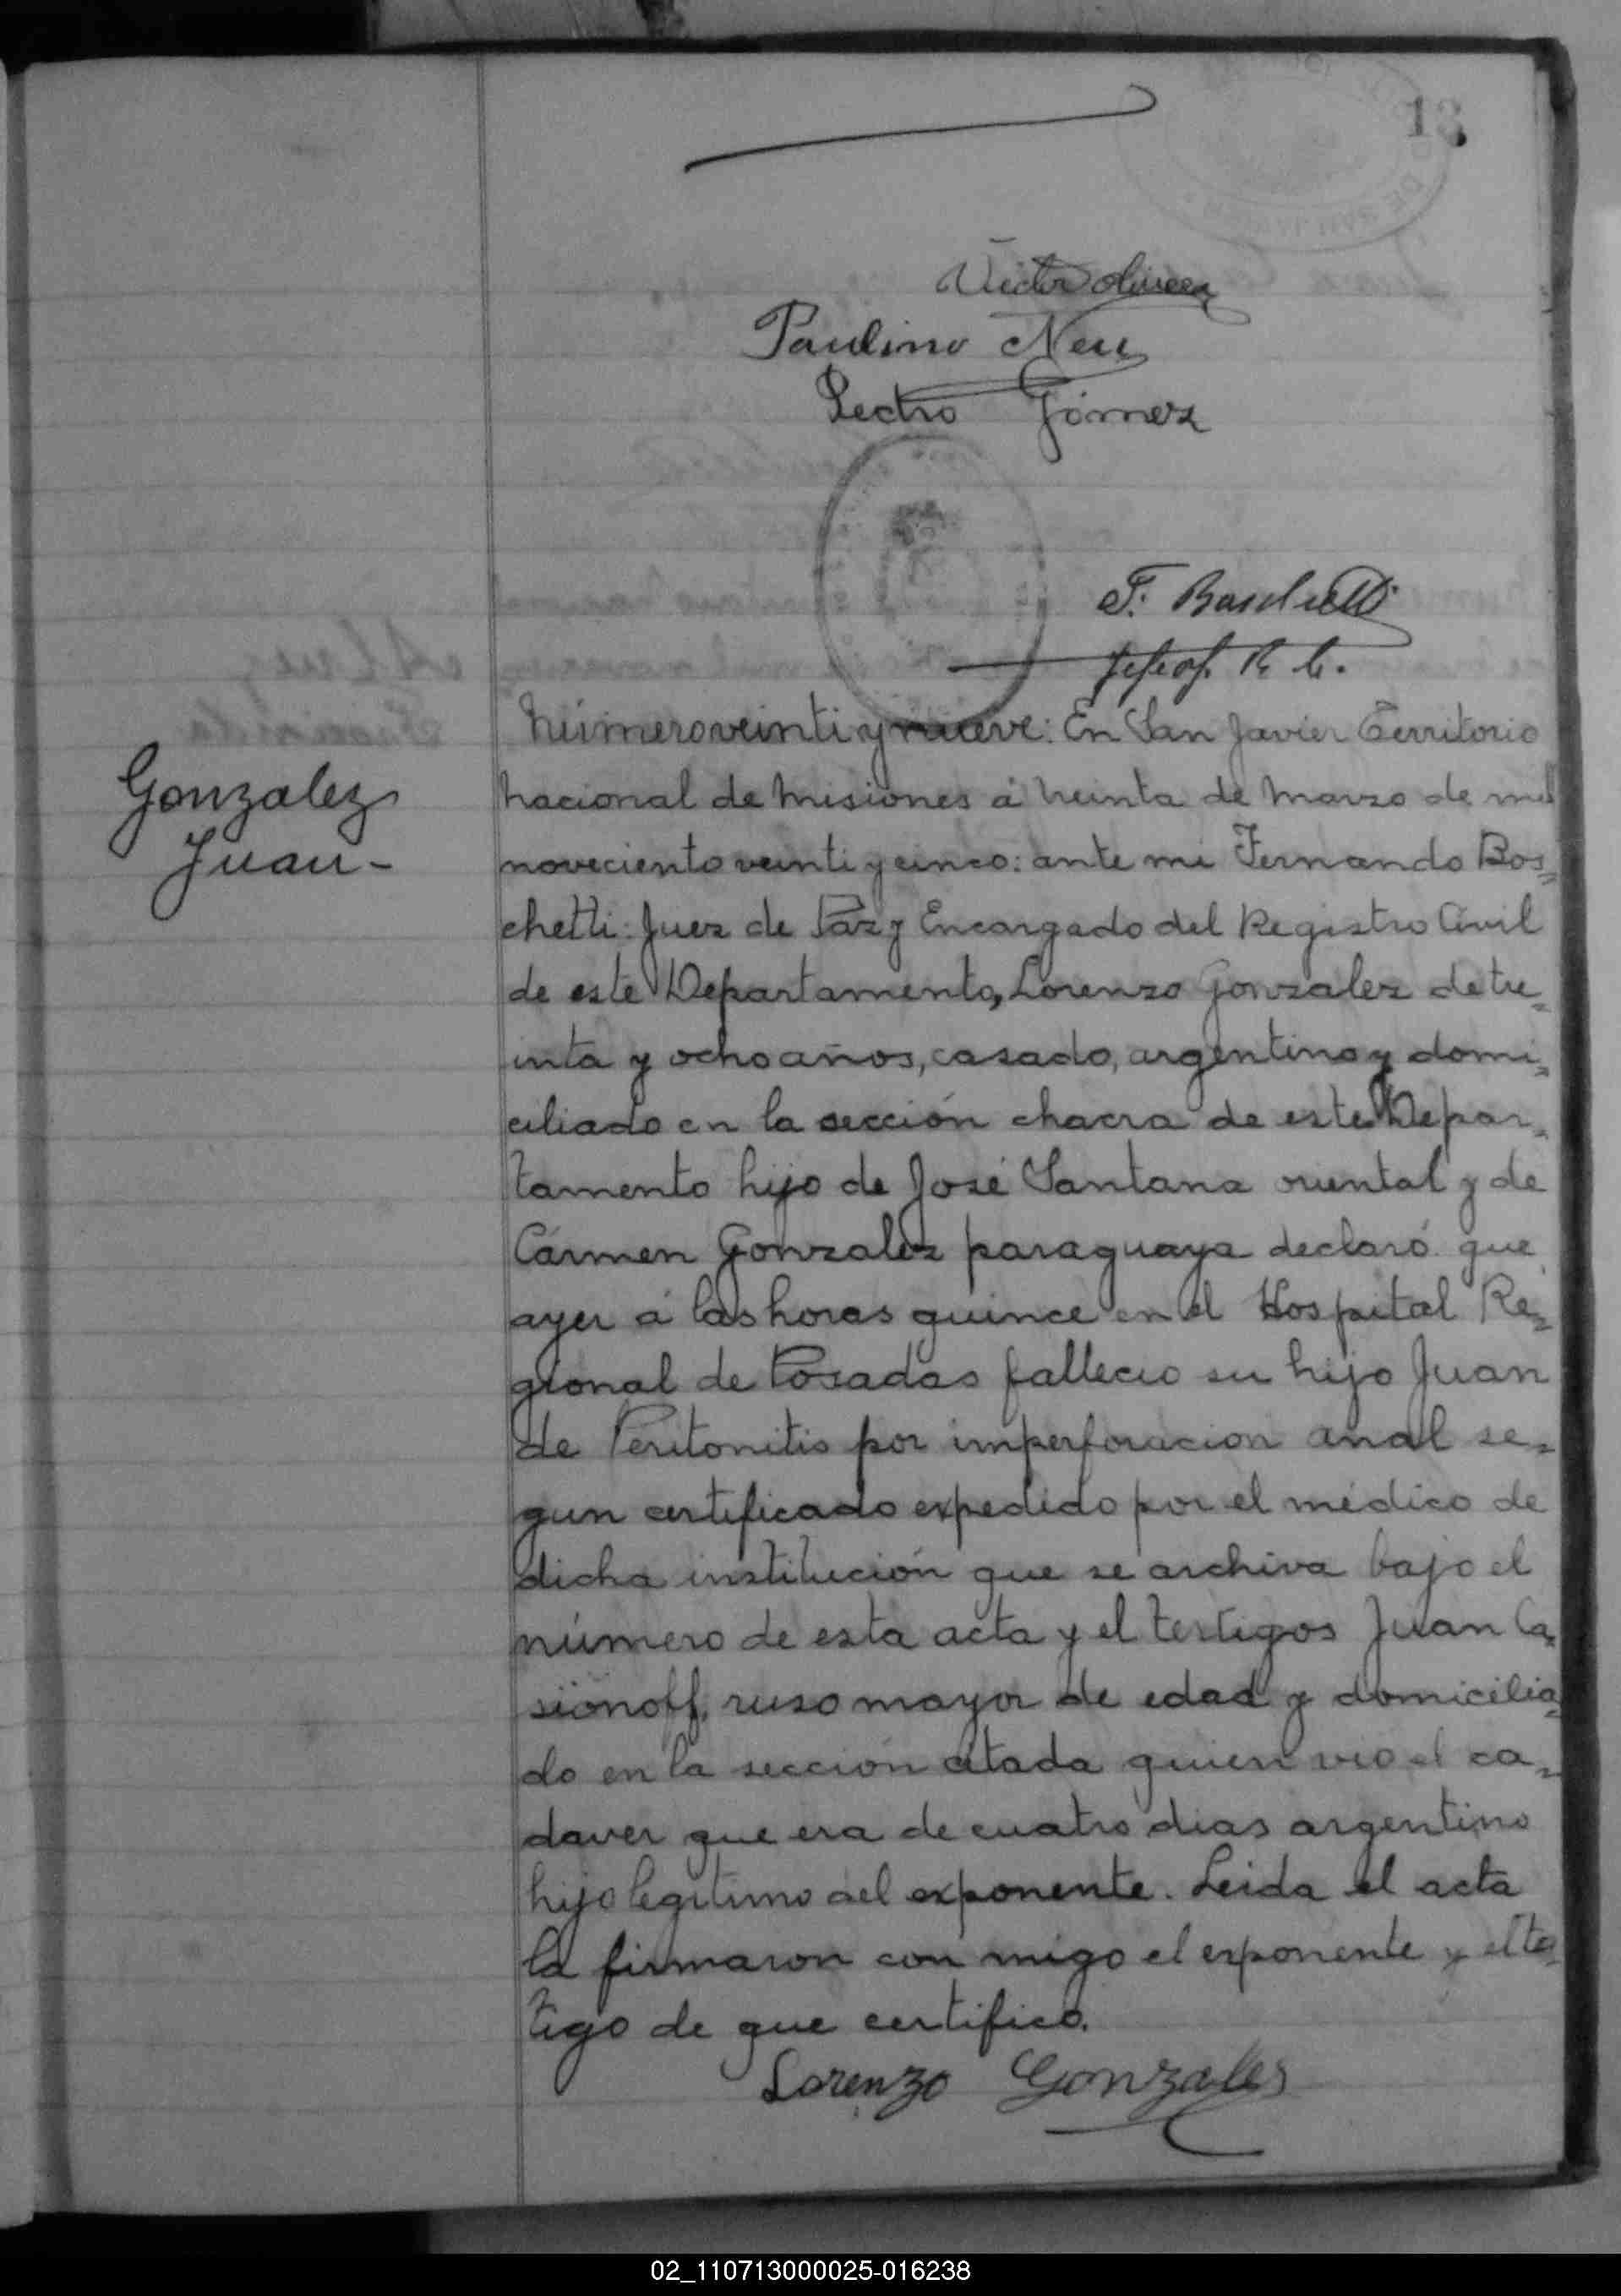 13
Victor Olivera
Paulino Neu
Pedro Gómez
F. Boschetti
Jefe of. R. C.
Gonzalez
Juan-
Número veinti y nueve: En San Javier Territorio
nacional de Misiones á treinta de Marzo de mil
noveciento veinti y cinco: ante mi Fernando Bos=
chetti: Juez de Paz y Encargado del Registro Civil
de este Departamento, Lorenzo Gonzalez de tre=
inta y ocho años, casado, argentino y domi=
ciliado en la sección chacra de este Depar=
tamento hijo de José Santana oriental y de
Cármen Gonzalez paraguaya declaró que
ayer á las horas quince en el Hospital Re=
gional de Posadas fallecio su hijo Juan
de Peritonitis por imperforacion anal se=
gun certificado expedido por el médico de
dicha institución que se archiva bajo el
número de esta acta y el testigos Juan Ca=
sionoff, ruso mayor de edad y domicilia=
do en la sección citada quien vio el ca=
daver que era de cuatro dias argentino
hijo legitimo del exponente. Leida el acta
la firmaron con migo el exponente y el tes=
tigo de que certifico.
Lorenzo Gonzales
02_110713000025-016238